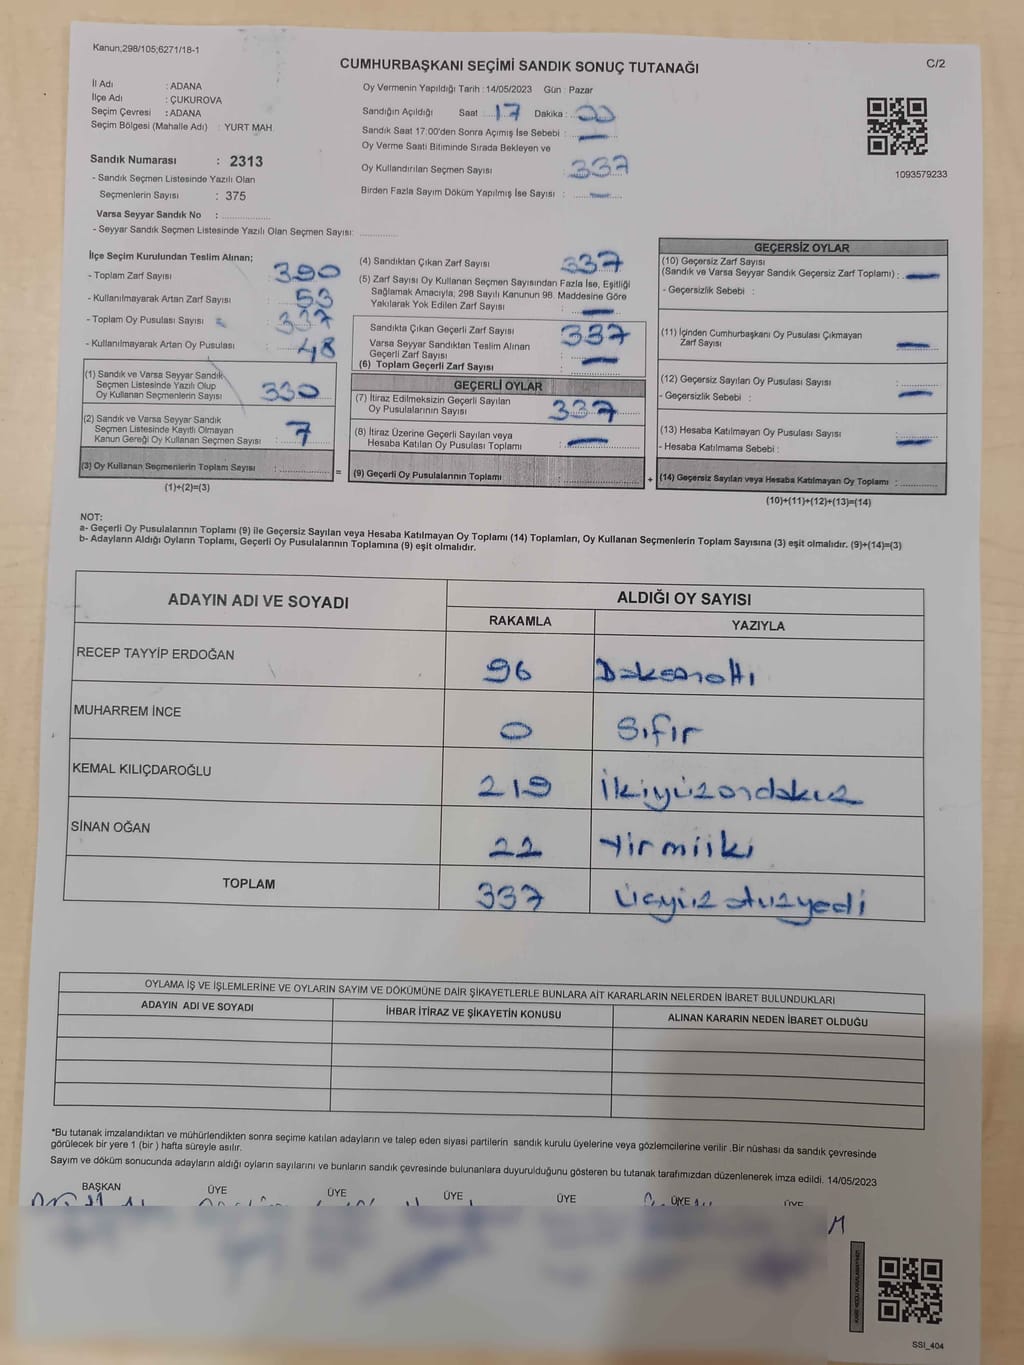 Kanun;298/105;6271/18-1
CUMHURBAŞKANI SEÇİMİ SANDIK SONUÇ TUTANAĞI
C/2
İl Adı : ADANA
İlçe Adı : ÇUKUROVA
Seçim Çevresi : ADANA
Seçim Bölgesi (Mahalle Adı) : YURT MAH.
Sandık Numarası : 2313
- Sandık Seçmen Listesinde Yazılı Olan
Seçmenlerin Sayısı : 375
Varsa Seyyar Sandık No : ................
- Seyyar Sandık Seçmen Listesinde Yazılı Olan Seçmen Sayısı: ............
Oy Vermenin Yapıldığı Tarih : 14/05/2023 Gün : Pazar
Sandığın Açıldığı Saat 17 Dakika : 00
Sandık Saat 17.00'den Sonra Açımış İse Sebebi : —
Oy Verme Saati Bitiminde Sırada Bekleyen ve
Oy Kullandırılan Seçmen Sayısı : 337
Birden Fazla Sayım Döküm Yapılmış İse Sayısı : —
1093579233
İlçe Seçim Kurulundan Teslim Alınan;
- Toplam Zarf Sayısı : 390
- Kullanılmayarak Artan Zarf Sayısı : 53
- Toplam Oy Pusulası Sayısı : 337
- Kullanılmayarak Artan Oy Pusulası : 48
(1) Sandık ve Varsa Seyyar Sandık
Seçmen Listesinde Yazılı Olup
Oy Kullanan Seçmenlerin Sayısı : 330
(2) Sandık ve Varsa Seyyar Sandık
Seçmen Listesinde Kayıtlı Olmayan
Kanun Gereği Oy Kullanan Seçmen Sayısı : 7
(3) Oy Kullanan Seçmenlerin Toplam Sayısı : ................
(1)+(2)=(3)
=
(4) Sandıktan Çıkan Zarf Sayısı : 337
(5) Zarf Sayısı Oy Kullanan Seçmen Sayısından Fazla İse, Eşitliği
Sağlamak Amacıyla, 298 Sayılı Kanunun 98. Maddesine Göre
Yakılarak Yok Edilen Zarf Sayısı : —
Sandıkta Çıkan Geçerli Zarf Sayısı : 337
Varsa Seyyar Sandıktan Teslim Alınan
Geçerli Zarf Sayısı : —
(6) Toplam Geçerli Zarf Sayısı : ................
GEÇERLİ OYLAR
(7) İtiraz Edilmeksizin Geçerli Sayılan
Oy Pusulalarının Sayısı : 337
(8) İtiraz Üzerine Geçerli Sayılan veya
Hesaba Katılan Oy Pusulaları Toplamı : —
(9) Geçerli Oy Pusulalarının Toplamı : ................
+
GEÇERSİZ OYLAR
(10) Geçersiz Zarf Sayısı
(Sandık ve Varsa Seyyar Sandık Geçersiz Zarf Toplamı) : —
- Geçersizlik Sebebi :
(11) İçinden Cumhurbaşkanı Oy Pusulası Çıkmayan
Zarf Sayısı : —
(12) Geçersiz Sayılan Oy Pusulası Sayısı : ................
- Geçersizlik Sebebi : —
(13) Hesaba Katılmayan Oy Pusulası Sayısı : —
- Hesaba Katılmama Sebebi :
(14) Geçersiz Sayılan veya Hesaba Katılmayan Oy Toplamı : ............
(10)+(11)+(12)+(13)=(14)
NOT:
a- Geçerli Oy Pusulalarının Toplamı (9) ile Geçersiz Sayılan veya Hesaba Katılmayan Oy Toplamı (14) Toplamları, Oy Kullanan Seçmenlerin Toplam Sayısına (3) eşit olmalıdır. (9)+(14)=(3)
b- Adayların Aldığı Oyların Toplamı, Geçerli Oy Pusulalarının Toplamına (9) eşit olmalıdır.
ADAYIN ADI VE SOYADI
ALDIĞI OY SAYISI
RAKAMLA YAZIYLA
RECEP TAYYİP ERDOĞAN 96 Doksanaltı
MUHARREM İNCE 0 Sıfır
KEMAL KILIÇDAROĞLU 219 İkiyüzondokuz
SİNAN OĞAN 22 Yirmiiki
TOPLAM 337 Üçyüz otuzyedi
OYLAMA İŞ VE İŞLEMLERİNE VE OYLARIN SAYIM VE DÖKÜMÜNE DAİR ŞİKAYETLERLE BUNLARA AİT KARARLARIN NELERDEN İBARET BULUNDUKLARI
ADAYIN ADI VE SOYADI İHBAR İTİRAZ VE ŞİKAYETİN KONUSU ALINAN KARARIN NEDEN İBARET OLDUĞU
*Bu tutanak imzalandıktan ve mühürlendikten sonra seçime katılan adayların ve talep eden siyasi partilerin sandık kurulu üyelerine veya gözlemcilerine verilir .Bir nüshası da sandık çevresinde
görülecek bir yere 1 (bir ) hafta süreyle asılır.
Sayım ve döküm sonucunda adayların aldığı oyların sayılarını ve bunların sandık çevresinde bulunanlara duyurulduğunu gösteren bu tutanak tarafımızdan düzenlenerek imza edildi. 14/05/2023
BAŞKAN ÜYE ÜYE ÜYE ÜYE ÜYE ÜYE
SSI_404